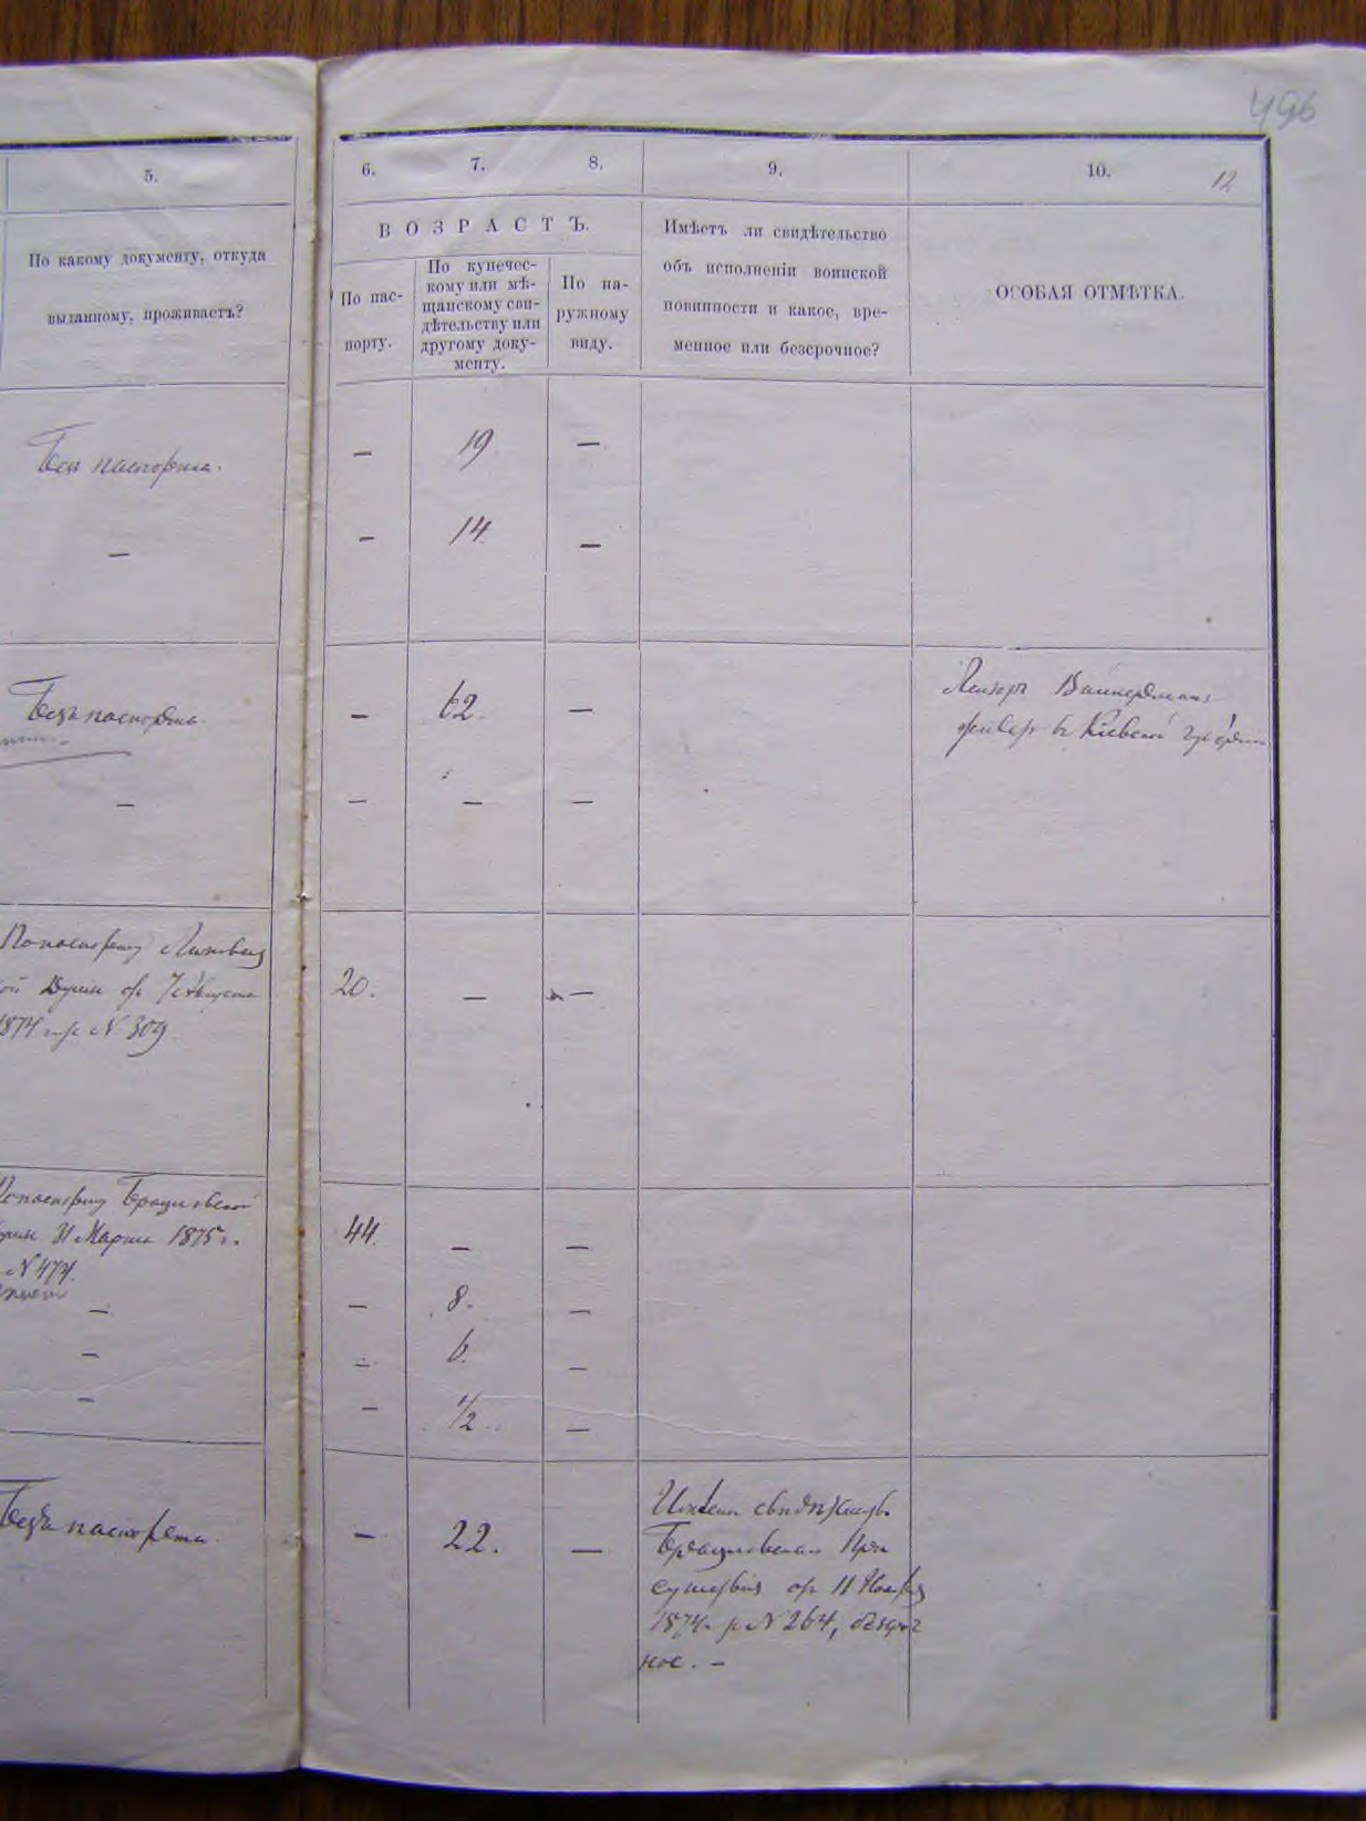 496
5.
6.
7.
8.
9.
10.
12
По какому документу, откуда
выданному, проживаетъ?
ВОЗРАСТЪ.
По пас-
порту.
По купечес-
кому или мѣ-
щанскому сви-
дѣтельству или
другому доку-
менту.
По на-
ружному
виду.
Имѣетъ ли свидѣтельство
объ исполненіи воинской
повинности и какое, вре-
менное или безсрочное?
ОСОБАЯ ОТМѢТКА.
Без паспорта.
— 19 —
— — 14 —
Безъ паспорта.
— 62. —
Лейзеръ
живетъ въ Кіевской губерніи
— — — —
По паспорту
ой Думы от 7 Августа
1874 № 309
20. — —
паспорту Брацлавской
31 Марта 1875 г.
№ 474.
44. — —
— — 8. —
— — 6. —
— — 1/2 —
Безъ паспорта.
— 22. —
Имѣетъ свидѣтельство
Брацлавскаго При
сутствія от 11 Ноября
1874 № 264, безсроч
ное. —